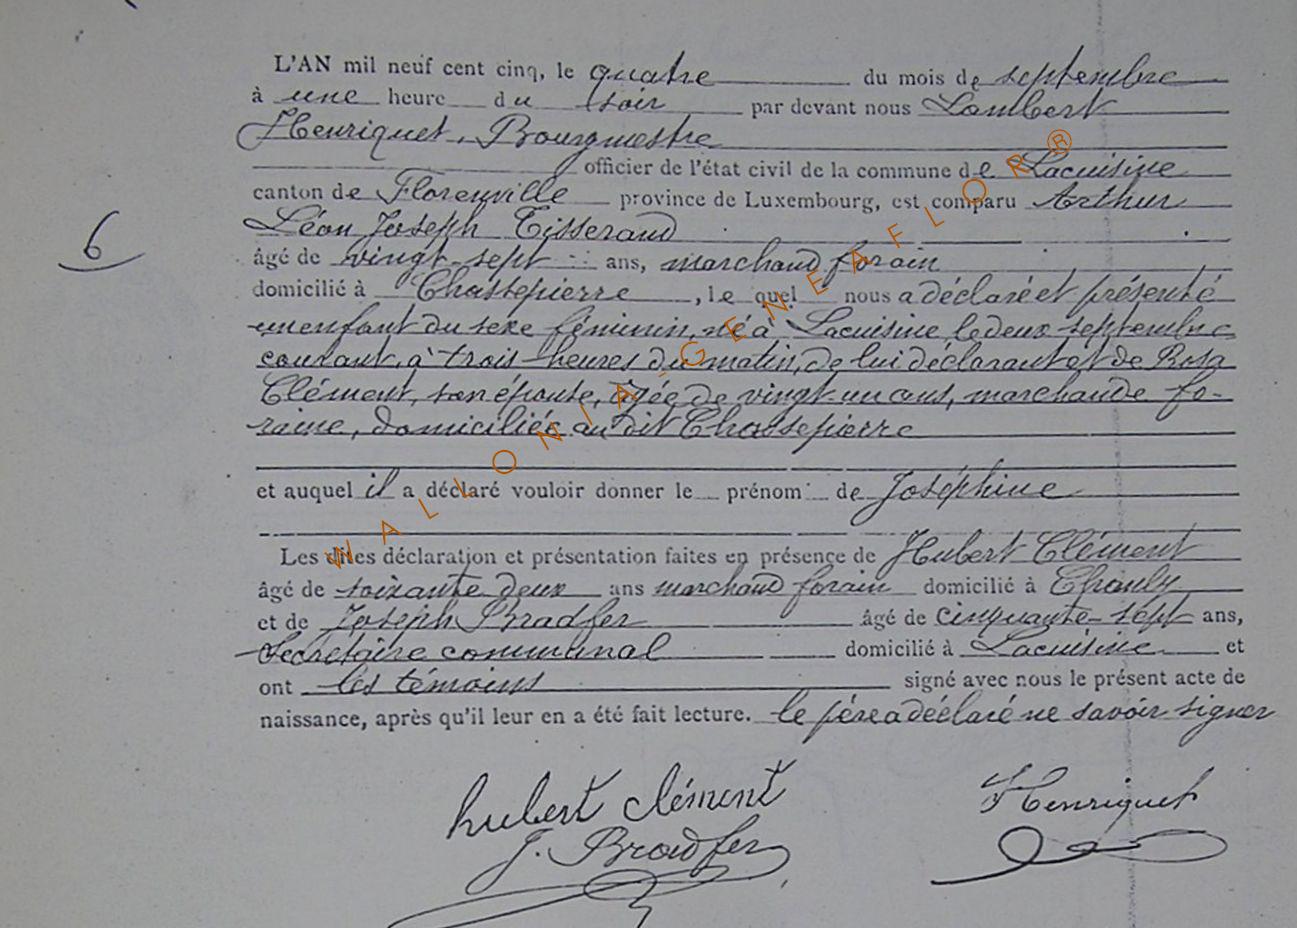 L'AN mil neuf cent cinq, le quatre du mois de septembre
à une heure du soir par devant nous Lambert
Henriquet, Bourgmestre
officier de l'état civil de la commune de Lacuisine
canton de Florenville province de Luxembourg, est comparu Arthur
Léon Joseph Tisserand
6
âgé de vingt-sept ans, marchand forain
domicilié à Chassepierre, le quel nous a déclaré et présenté
un enfant du sexe féminin, né à Lacuisine le deux septembre
courant, à trois heures du matin, de lui déclarant et de Rosa
Clément, son épouse, âgée de vingt-un ans, marchande fo-
raine, domiciliée au dit Chassepierre
et auquel il a déclaré vouloir donner le prénom de Joséphine
Les dites déclaration et présentation faites en présence de Hubert Clément
âgé de soixante deux ans marchand forain domicilié à Chauly
et de Joseph Bradfer âgé de cinquante-sept ans,
Secrétaire communal domicilié à Lacuisine et
ont les témoins signé avec nous le présent acte de
naissance, après qu'il leur en a été fait lecture. le père a déclaré ne savoir signer
hubert clément
J. Bradfer
Henriquet
WALLONIA-GENEAFLOR®